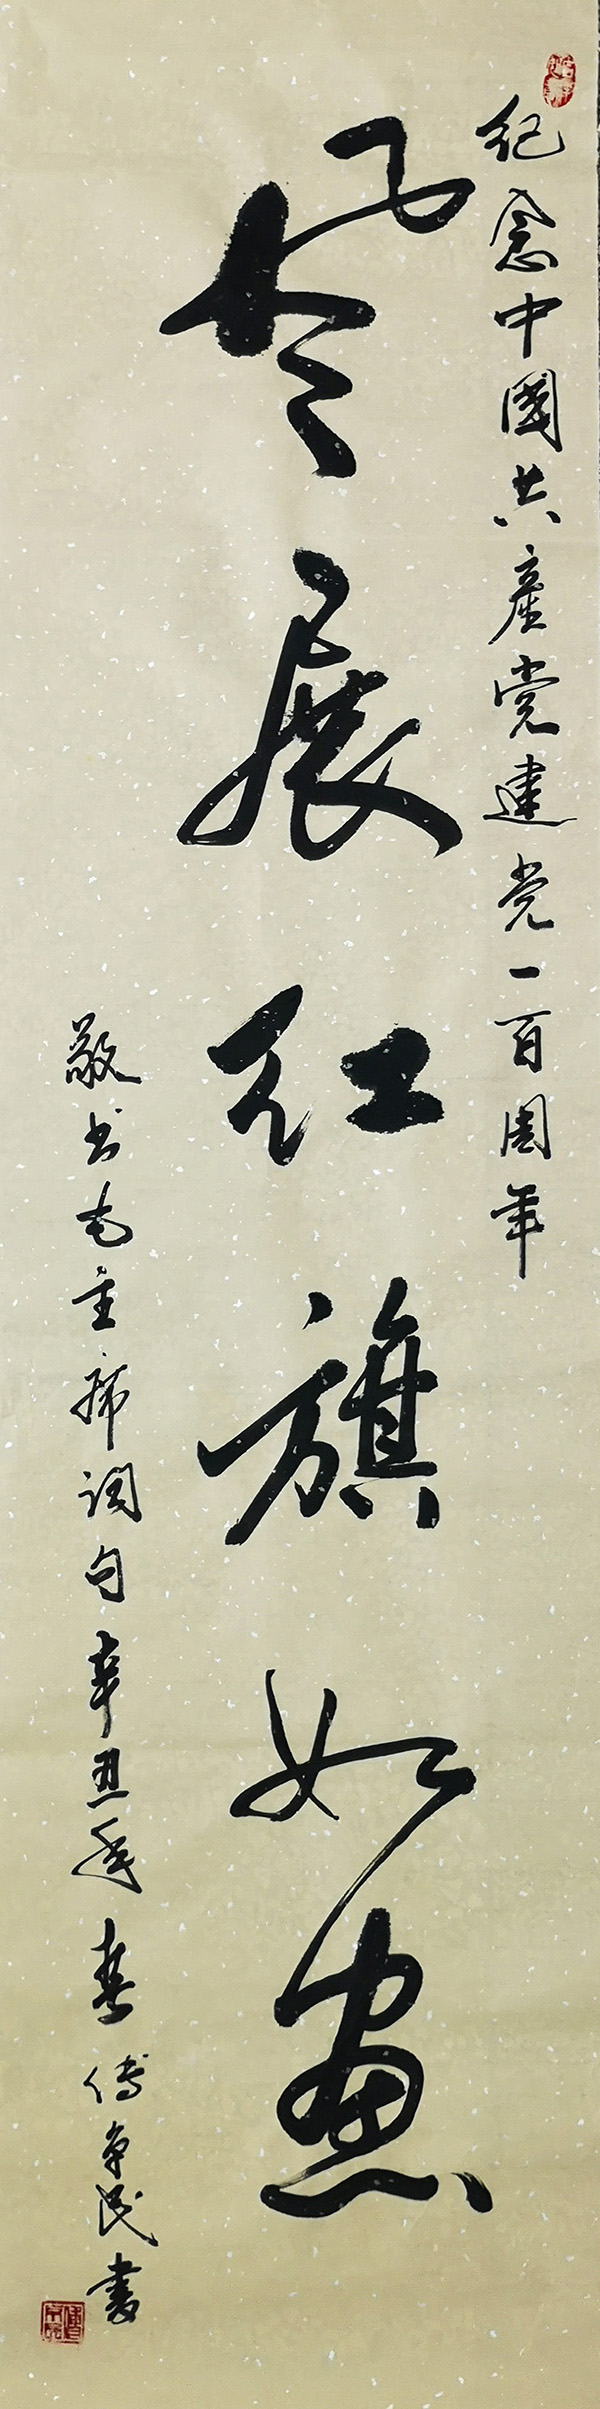 纪念中國共産党建党一百周年
风展红旗如画
敬书毛主席词句辛丑年春傅争民書